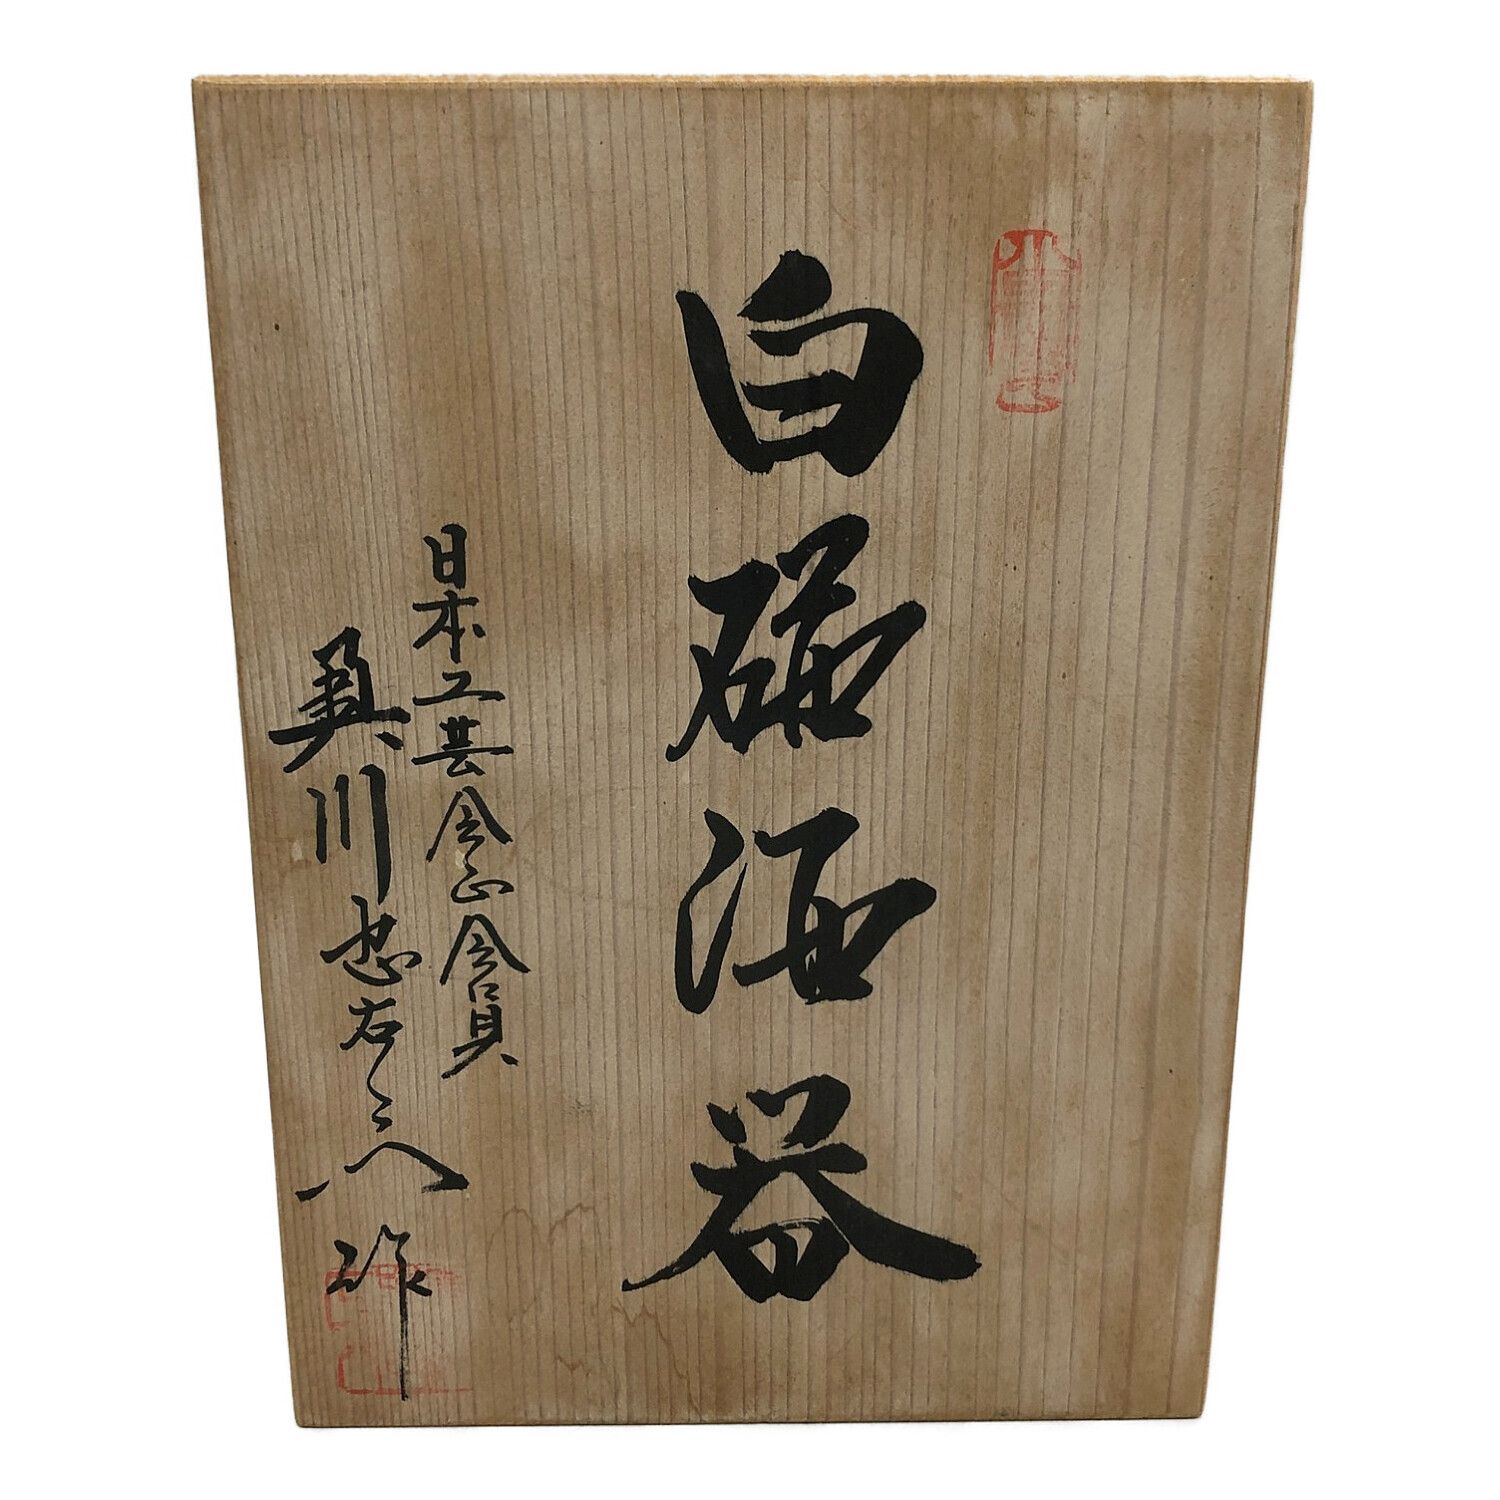 白磁酒器
日本工芸会正会員
奥川忠右ェ門作